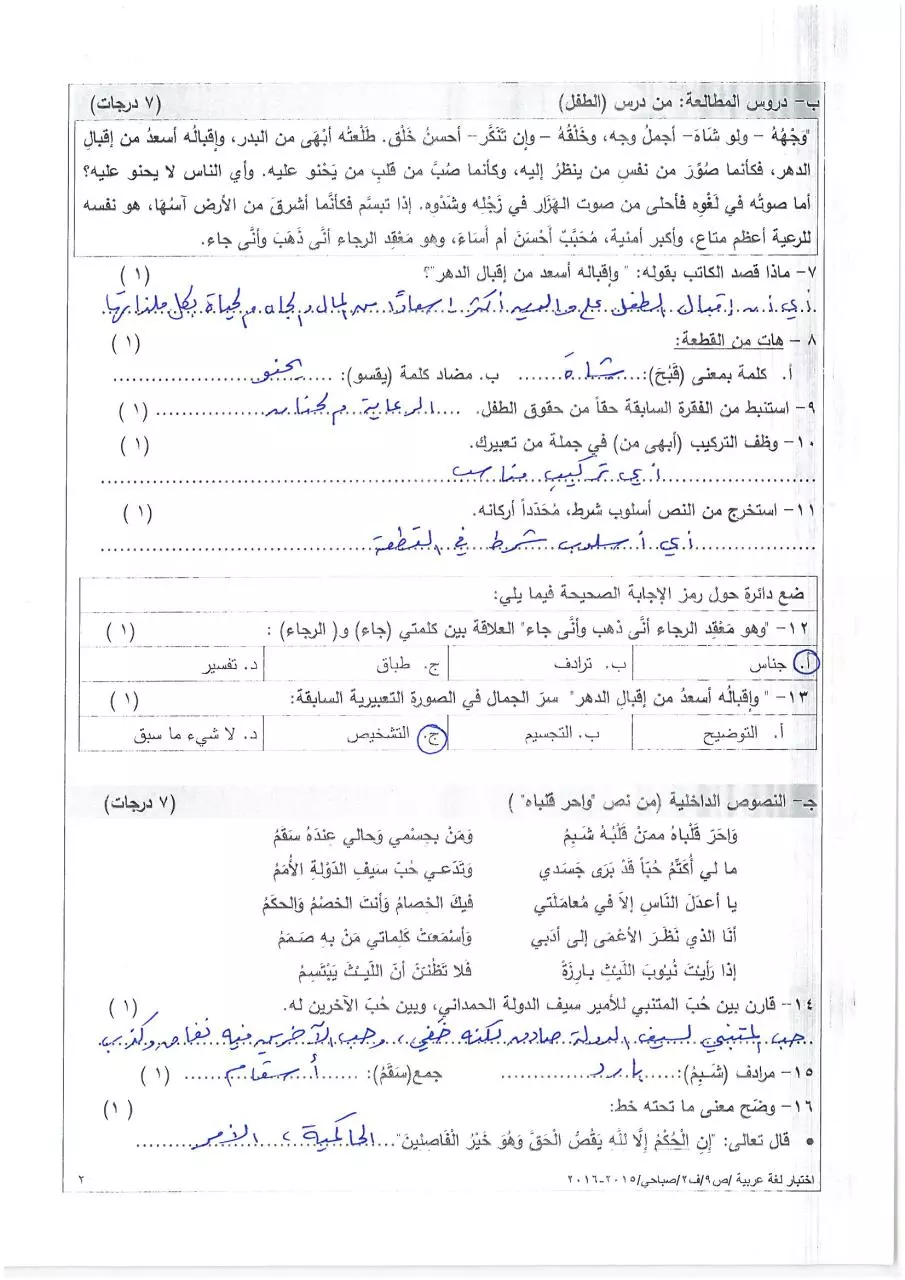 ب- دروس المطالعة: من درس (الطفل) (٧ درجات)
"وَجْهُهُ – ولو شَاهَ- أجملُ وجه، وخَلْقُهُ – وإن تَنَكَّر– أحسنُ خَلْق. طَلْعتُه أبْهَى من البدر، وإقبالُه أسعدُ من إقبالِ
الدهر، فكأنما صُوِّرَ من نفسِ من ينظرُ إليه، وكأنما صُبَّ من قلبِ من يَحْنو عليه. وأي الناس لا يحنو عليه؟
أما صوتُه في لَغْوِه فأحلى من صوت الهَزَار في زَجْلِه وشَدْوِه. إذا تبسَّم فكأنَّما أشرقَ من الأرض آسُهَا، هو نفسه
للرعية أعظم متاع، وأكبر أمنية، مُحَبَّبٌ أحْسَنَ أم أسَاءَ، وهو مَعْقِد الرجاء أنَّى ذَهَبَ وأنَّى جاء.
٧- ماذا قصد الكاتب بقوله: " وإقباله أسعد من إقبال الدهر"؟ (١)
أي أن إقبال الطفل على والديه أكثر إسعادًا من المال والجاه والحياة بكل ملذاتها
٨- هات من القطعة: (١)
أ. كلمة بمعنى (قَبُحَ): شَاهَ ب. مضاد كلمة (يقسو): يحنو
٩- استنبط من الفقرة السابقة حقاً من حقوق الطفل. الرعاية والحنان (١)
١٠- وظف التركيب (أبهى من) في جملة من تعبيرك. (١)
أي تركيب مناسب
١١- استخرج من النص أسلوب شرط، مُحَدَداً أركانه. (١)
أي أسلوب شرط في القطعة
ضع دائرة حول رمز الإجابة الصحيحة فيما يلي:
١٢- "وهو مَعْقِد الرجاء أنَّى ذهب وأنَّى جاء" العلاقة بين كلمتي (جاء) و( الرجاء) : (١)
أ. جناس ب. ترادف ج. طباق د. تفسير
١٣- " وإقبالُه أسعدُ من إقبالِ الدهر" سرَ الجمال في الصورة التعبيرية السابقة: (١)
أ. التوضيح ب. التجسيم ج. التشخيص د. لا شيء ما سبق
جـ- النصوص الداخلية (من نص "واحر قلباه" ) (٧ درجات)
وَاحَرَ قَلْبَاهُ ممَنْ قَلْبُهُ شَبِمُ وَمَنْ بِجِسْمي وَحالي عِندَهُ سَقَمُ
ما لي أُكَتِّمُ حُبّاً قَدْ بَرَى جَسَدي وَتَدَعي حُبَ سَيفِ الدَوْلةِ الأُمَمُ
يا أعدَلَ النَاسِ إلاَ في مُعامَلَتي فيكَ الخِصامُ وَأنتَ الخصْمُ وَالحكَمُ
أنَا الذي نَظَرَ الأعْمَى إلى أدَبي وَأسْمَعَتْ كَلِماتي مَنْ بهِ صَمَمُ
إذا رَأيْتَ نُيُوبَ اللَيْثِ بارِزَةً فَلا تَظُنَنَ أنَ اللَيْثَ يَبْتَسِمُ
١٤- قارن بين حُبَ المتنبي للأمير سيف الدولة الحمداني، وبين حُبَ الآخرين له. (١)
حب المتنبي لسيف الدولة صادق لكنه خفي، وحب الآخرين فيه نفاق وكذب
١٥- مرادف (شَبِمُ): بارد جمع(سَقَمُ): أسقام (١)
١٦- وضَح معنى ما تحته خط: (١)
• قال تعالى: "إِنِ الْحُكْمُ إِلَّا لِلَّهِ يَقُصُّ الْحَقَّ وَهُوَ خَيْرُ الْفَاصِلِينَ" الحاكمية، الأمر
اختبار لغة عربية /ص٩/ف٢/صباحي/٢٠١٥-٢٠١٦ ٢